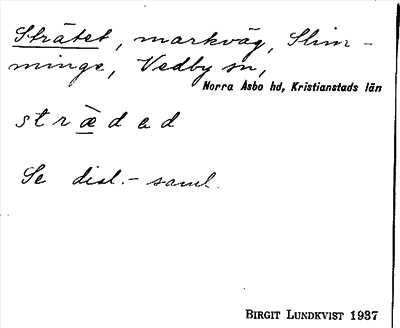 Strätet, markväg, Slim-
minge, Vedby sn,
Norra Åsbo hd, Kristianstads län
stræ̀dad
Se dial.- saml.
BIRGIT LUNDKVIST 1937